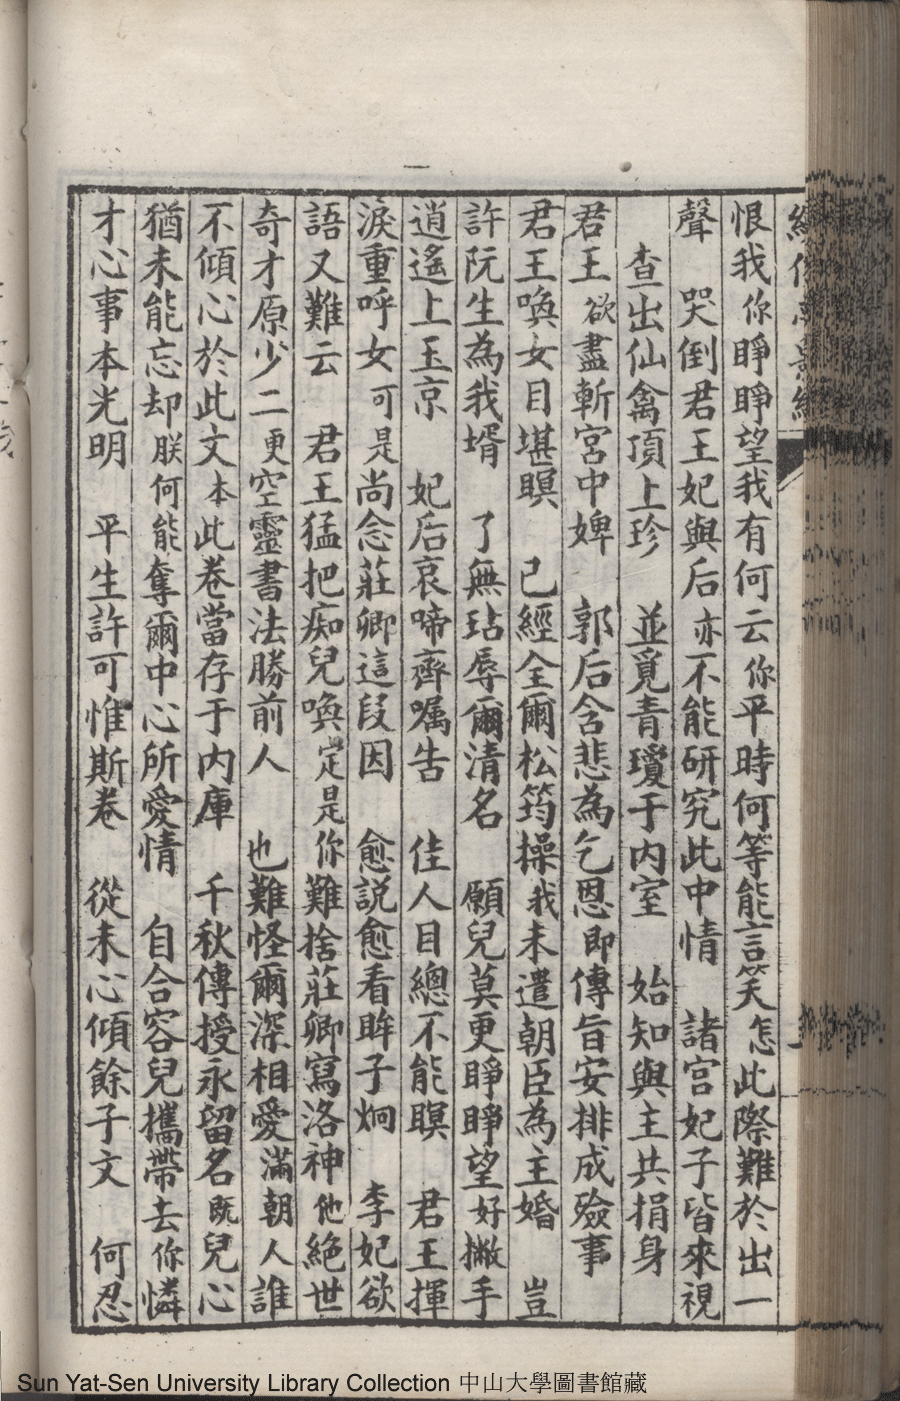 恨我你睜睜望我有何云你平時何等能言笑怎此際難於出一
聲 哭倒君王妃與后亦不能研究此中情 諸宮妃子皆來視
查出仙禽頂上珍 並覓青瓊于内室 始知與主共捐身
君王欲盡斬宮中婢 郭后含悲為乞恩即傳旨安排成殮事
君王喚女目堪瞑 已經全爾松筠操我未遣朝臣為主婚 豈
許阮生為我壻 了無玷辱爾清名 願兒莫更睜睜望好撇手
逍遙上玉京 妃后哀啼齊囑告 佳人目總不能瞑 君王揮
淚重呼女可是尚念莊卿這段因 愈説愈看眸子炯 李妃欲
語又難云 君王猛把痴兒喚定是你難捨莊卿寫洛神他絕世
奇才原少二更空靈書法勝前人 也難怪爾深相愛滿朝人誰
不傾心於此文本此卷當存于内庫 千秋傳授永留名既兒心
猶未能忘却朕何能奪爾中心所愛情 自合容兒攜帶去你憐
才心事本光明 平生許可惟斯卷 從未心傾餘子文 何忍
Sun Yat-Sen University Library Collection 中山大學圖書館藏